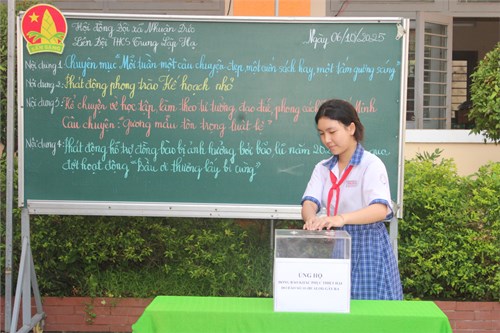 Hội đồng Đội xã Nhuận Đức
Liên Đội THCS Trung Lập Hạ
Ngày 06/10/2025
Nội dung 1: Chuyên mục "Mỗi tuần một câu chuyện đẹp, một cuốn sách hay, một tấm gương sáng"
Nội dung 2: Phát động phong trào Kế hoạch nhỏ
Nội dung 3: Kể chuyện về học tập, làm theo tư tưởng, đạo đức, phong cách Minh
Câu chuyện: "Gương mẫu tôn trọng luật lệ"
Nội dung 4: Phát động hỗ trợ đồng bào bị ảnh hưởng bởi bão lũ năm 20 qua
đợt hoạt động "Bầu ơi thương lấy bí cùng"
MĂNG NON
ỦNG HỘ
ĐỒNG BÀO KHẮC PHỤC THIỆT HẠI